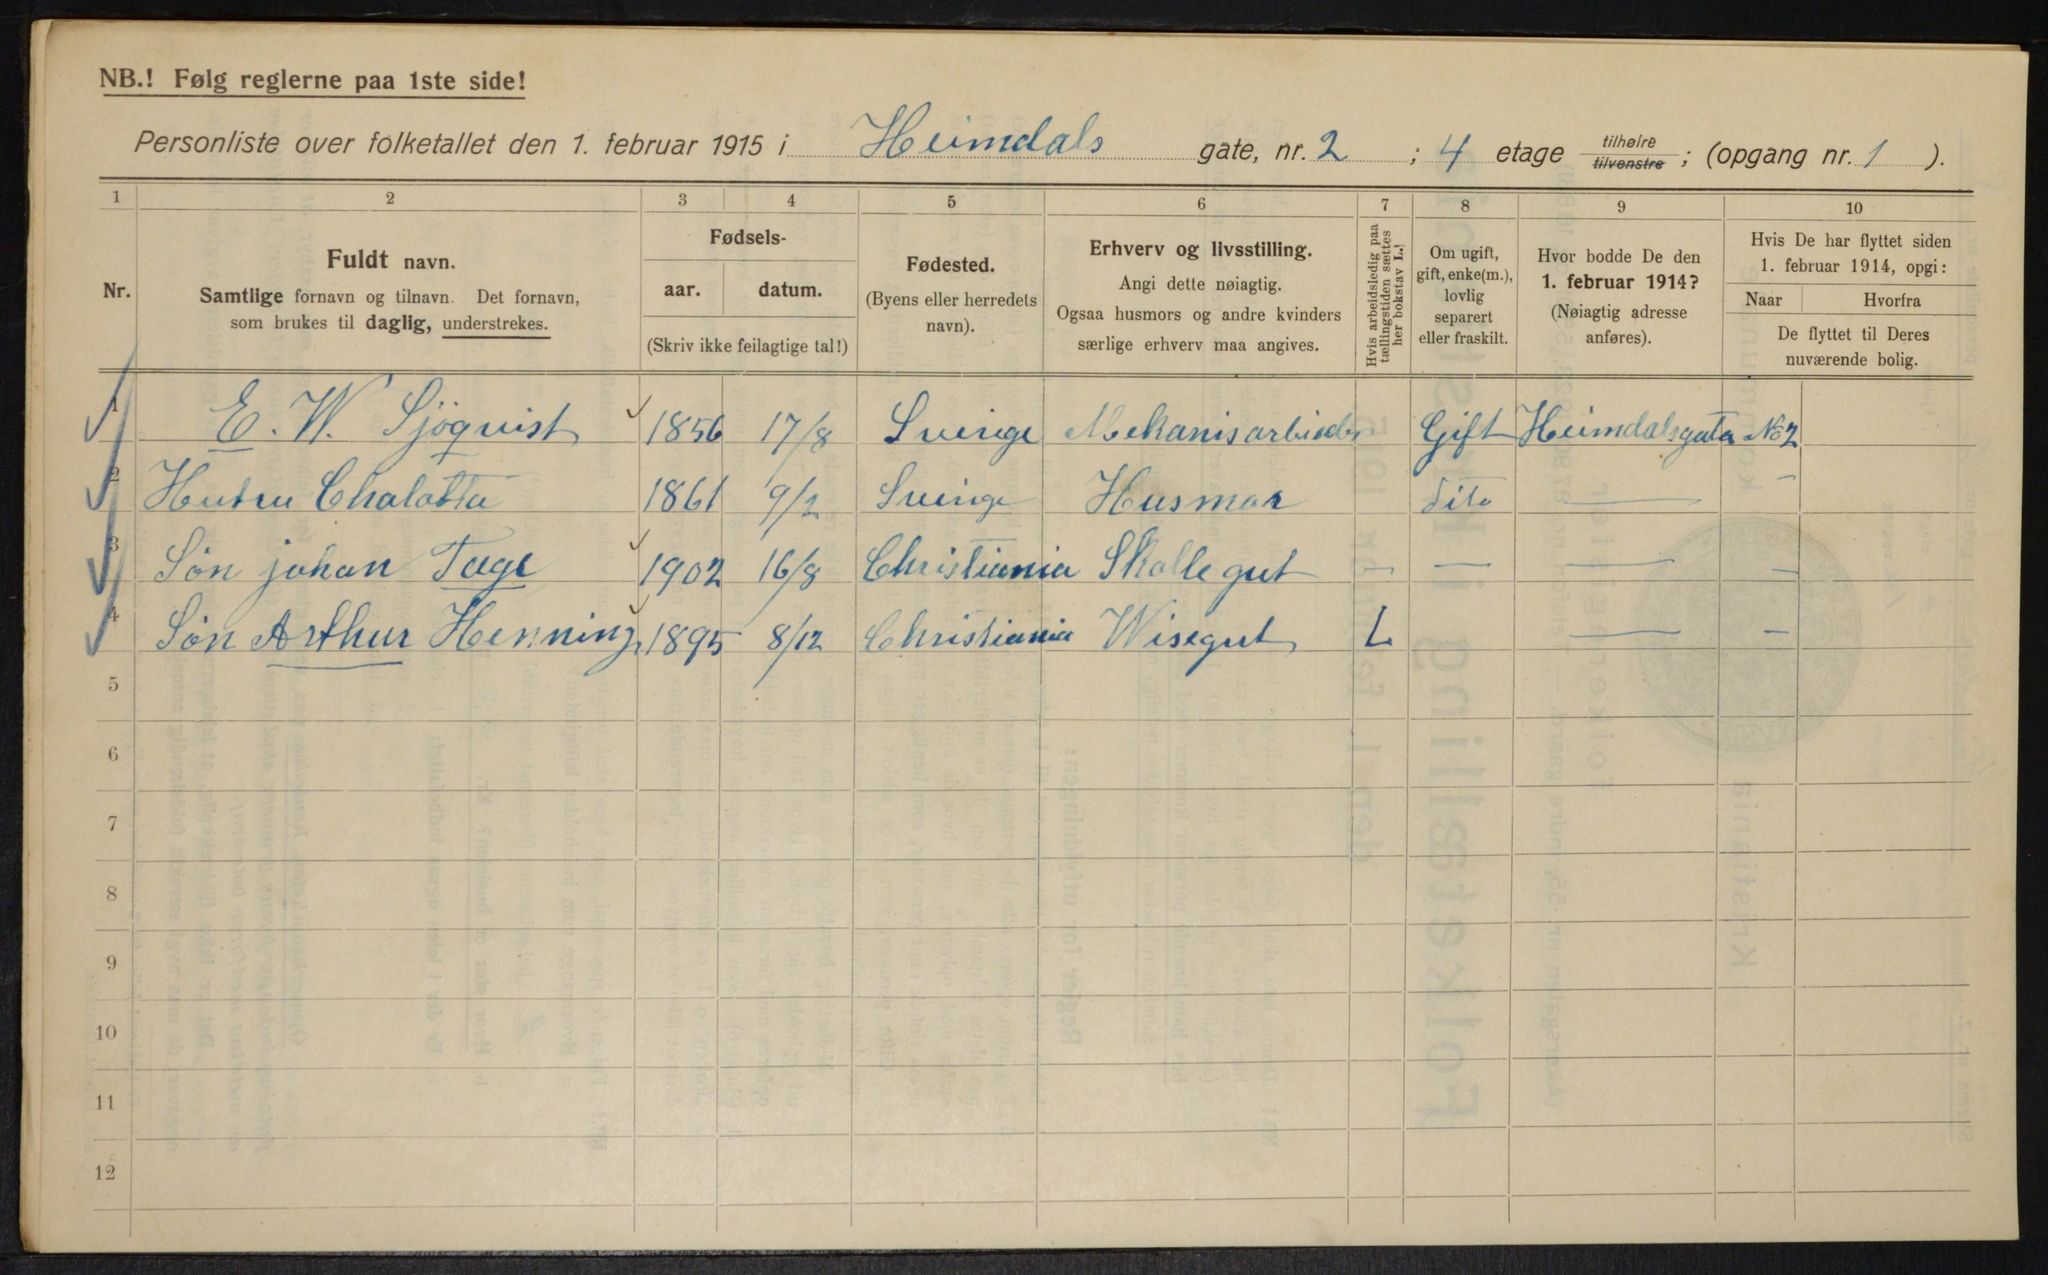 NB.! Følg reglerne paa 1ste side!
Personliste over folketallet den 1. februar 1915 i Heimdals gate, nr. 2 ; 4 etage tilhøire tilvenstre ; (opgang nr. 1 ).
1 2 3 4 5 6 7 8 9 10
Nr.
Fuldt navn.
Samtlige fornavn og tilnavn. Det fornavn,
som brukes til daglig, understrekes.
Fødsels-
aar. datum.
(Skriv ikke feilagtige tal!)
Fødested.
(Byens eller herredets
navn).
Erhverv og livsstilling.
Angi dette nøiagtig.
Ogsaa husmors og andre kvinders
særlige erhverv maa angives.
Hvis arbeidsledig paa
tællingstiden sættes
her bokstav L.!
Om ugift,
gift, enke(m.),
lovlig
separert
eller fraskilt.
Hvor bodde De den
1. februar 1914?
(Nøiagtig adresse
anføres).
Hvis De har flyttet siden
1. februar 1914, opgi:
Naar Hvorfra
De flyttet til Deres
nuværende bolig.
1 E. W. Sjöqvist 1856 17/8 Sverige Mekanisarbieder Gift Heimdalsgata No 2
2 Hutru Chalotta 1861 9/2 Sverige Husmor dito — -
3 Sön johan Tage 1902 16/8 Christiania Skollegut - — — -
4 Sön Arthur Henning 1895 8/12 Christiania Wisegut L — -
5
6
7
8
9
10
11
12